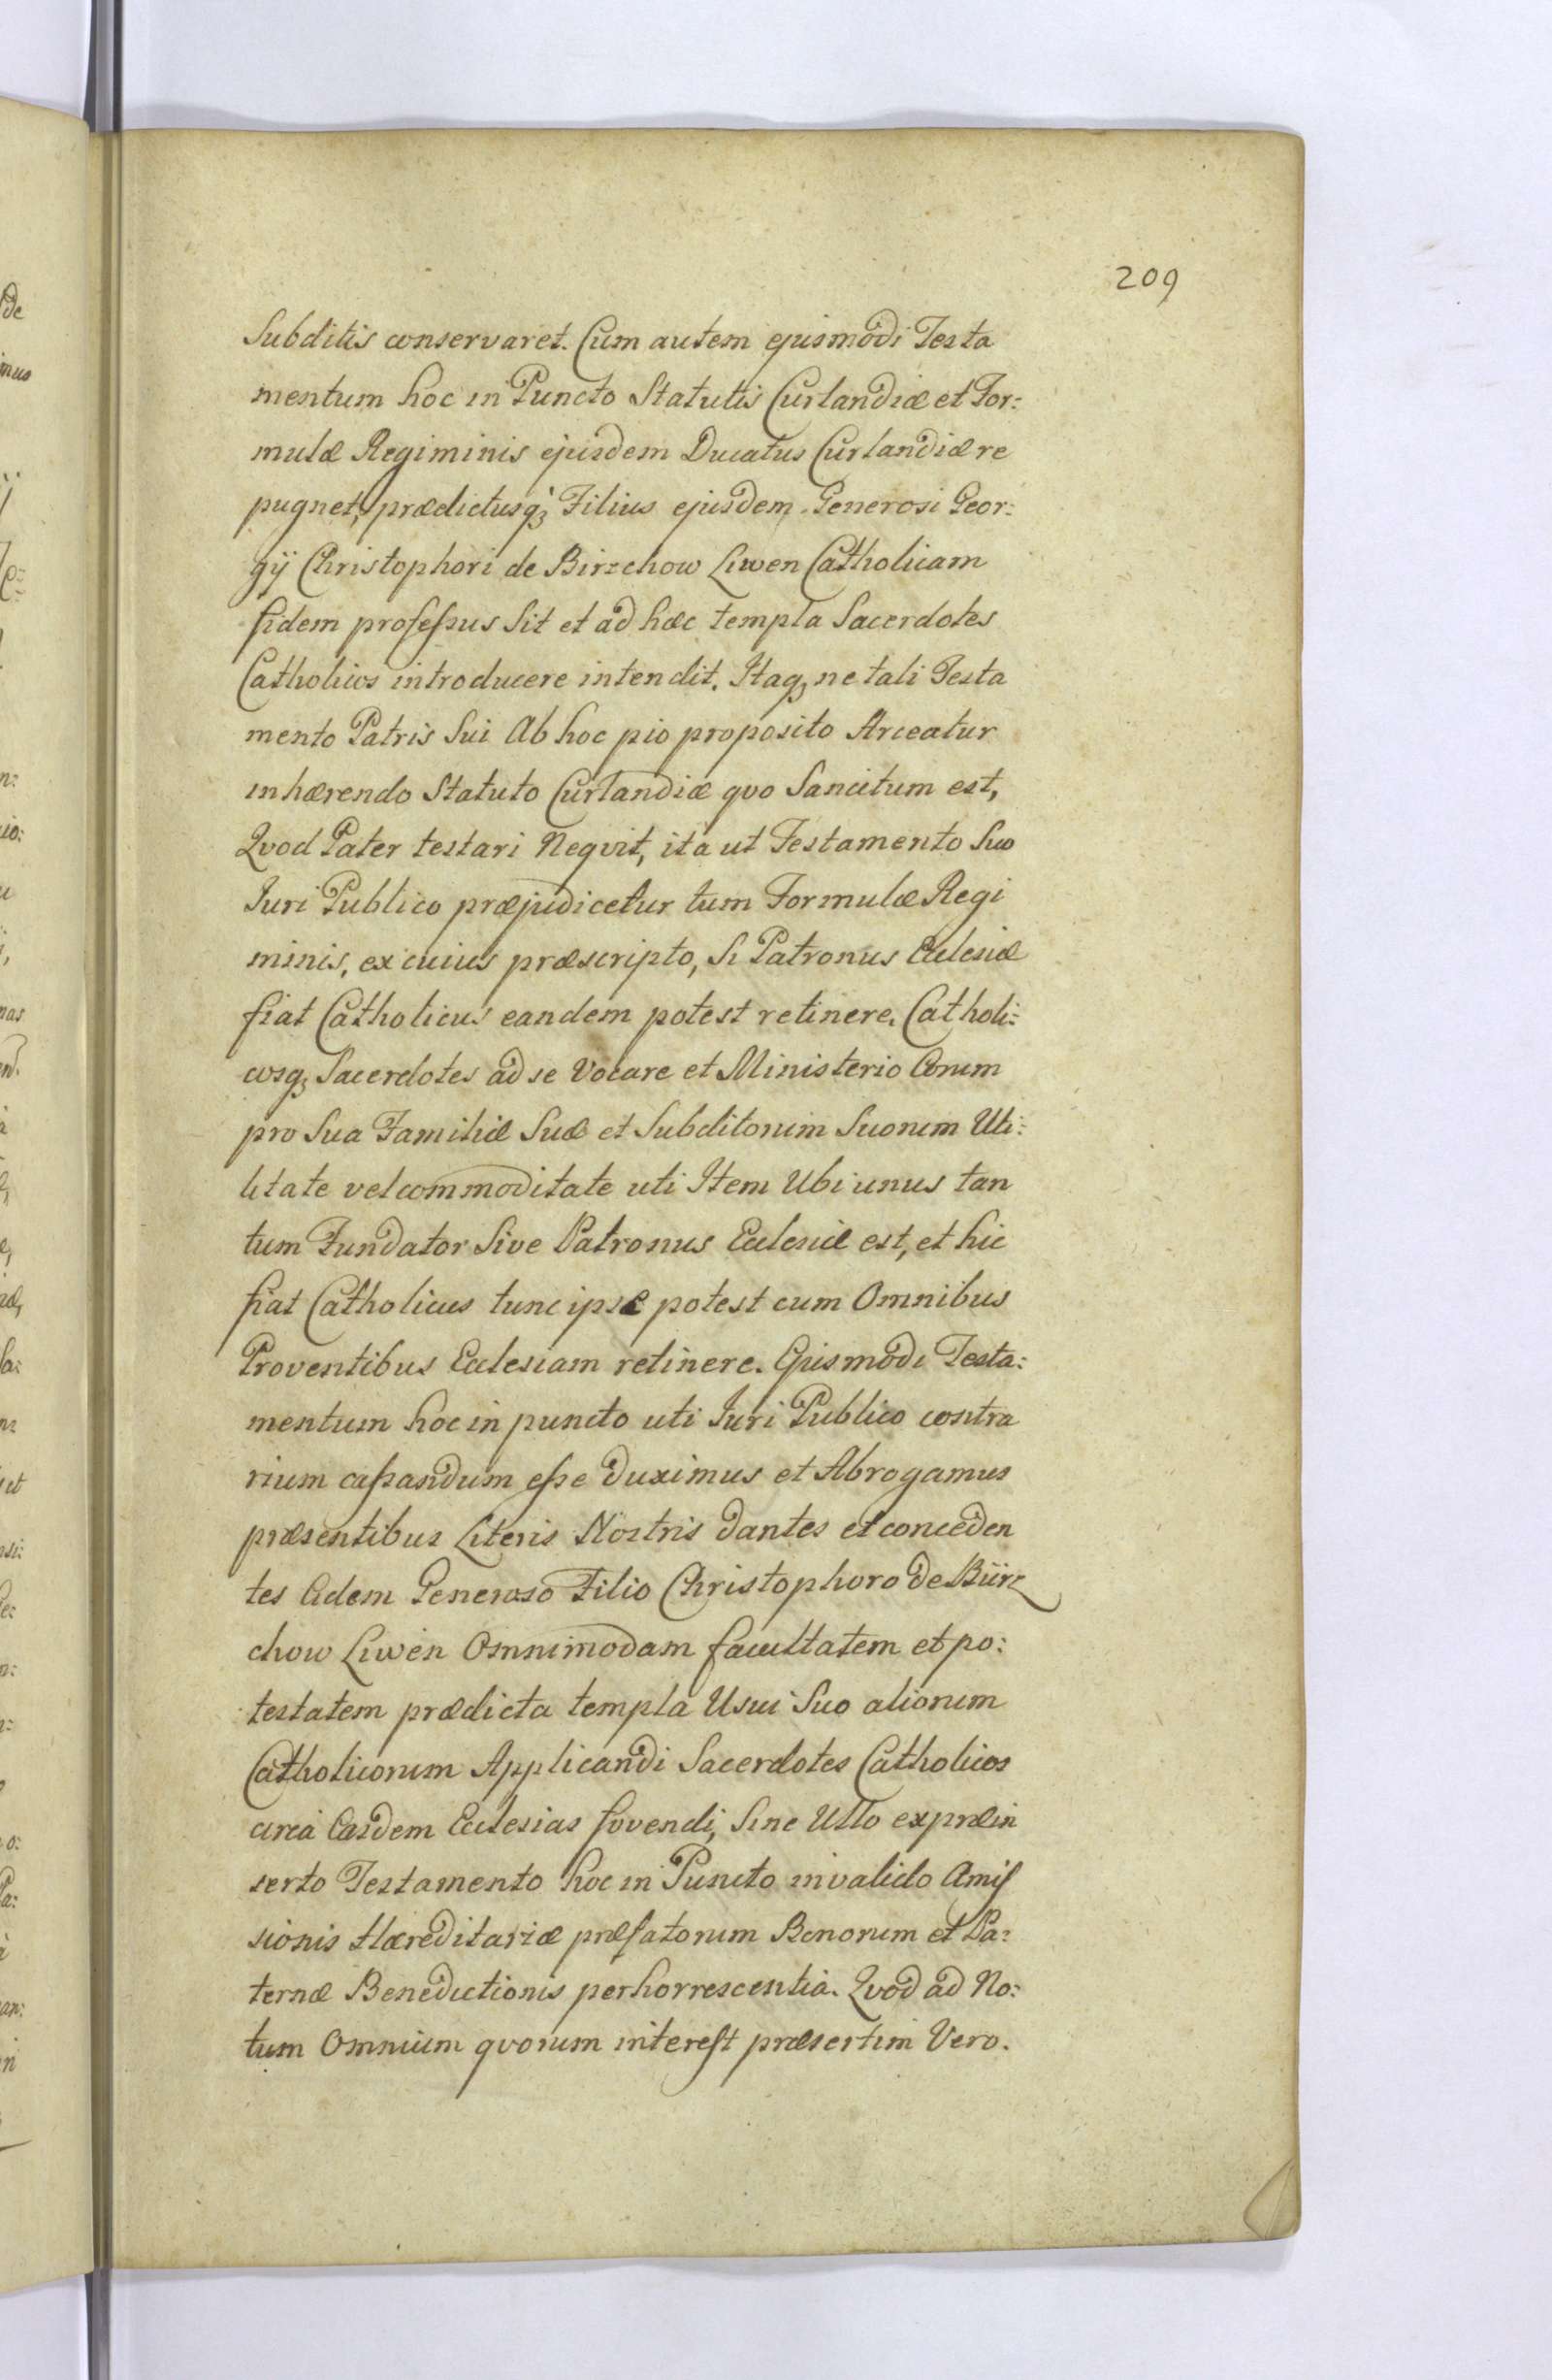 209
Subditis conservaret. Cum autem ejusmodi Testa
mentum hoc in Puncto Statutis Curlandiæ et For:
mulæ Regiminis ejusdem Ducatus Curlandiæ re
pugnet, prædictusqꝫ Filius ejusdem Generosi Geor:
gij Christophori de Birzchow Liwen Catholicam
fidem professus Sit et ad hæc templa Sacerdotes
Catholicos introducere intendit. Itaqꝫ ne tali Testa
mento Patris Sui Ab hoc pio proposito Arceatur
inhærendo Statuto Curlandiæ qvo Sancitum est,
Qvod Pater testari Neqvit, ita ut Testamento Suo
Iuri Publico præjudicetur tum Formulæ Regi
minis, ex cuius præscripto, Si Patronus Ecclesiæ
fiat Catholicus eandem potest retinere, Catholi:
cosqꝫ Sacerdotes ad se Vocare et Ministerio Eorum
pro Sua Familiæ Suæ et Subditorum Suorum Uti:
litate vel commoditate uti Item Ubi unus tan
tum Fundator Sive Patronus Ecclesiæ est, et hic
fiat Catholicus tunc ipse potest cum Omnibus
Proventibus Ecclesiam retinere. Ejusmodi Testa:
mentum hoc in puncto uti Iuri Publico contra
rium cassandum esse duximus et Abrogamus
præsentibus Literis Nostris dantes et conceden
tes Eidem Generoso Filio Christophoro de Biirz
chow Liwen Omnimodam facultatem et po:
testatem prædicta templa Usui Suo aliorum
Catholicorum Applicandi Sacerdotes Catholicos
circa Easdem Ecclesias fovendi, Sine Ullo ex præin
serto Testamento hoc in Puncto invalido Amis
sionis Hæreditariæ præfatorum Bonorum et Pa:
ternæ Benedictionis perhorrescentia. Qvod ad No:
tum Omnium qvorum interest præsertim Vero.